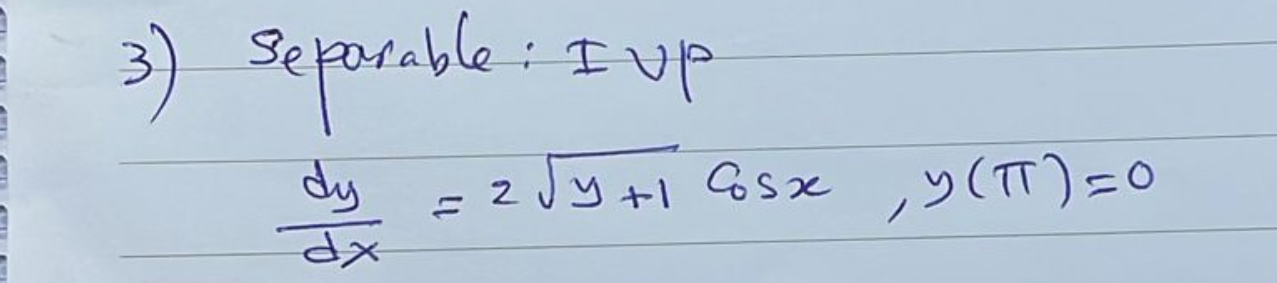 3) Separable: IVP
dy/dx = 2√(y+1) Cosx , y(π)=0